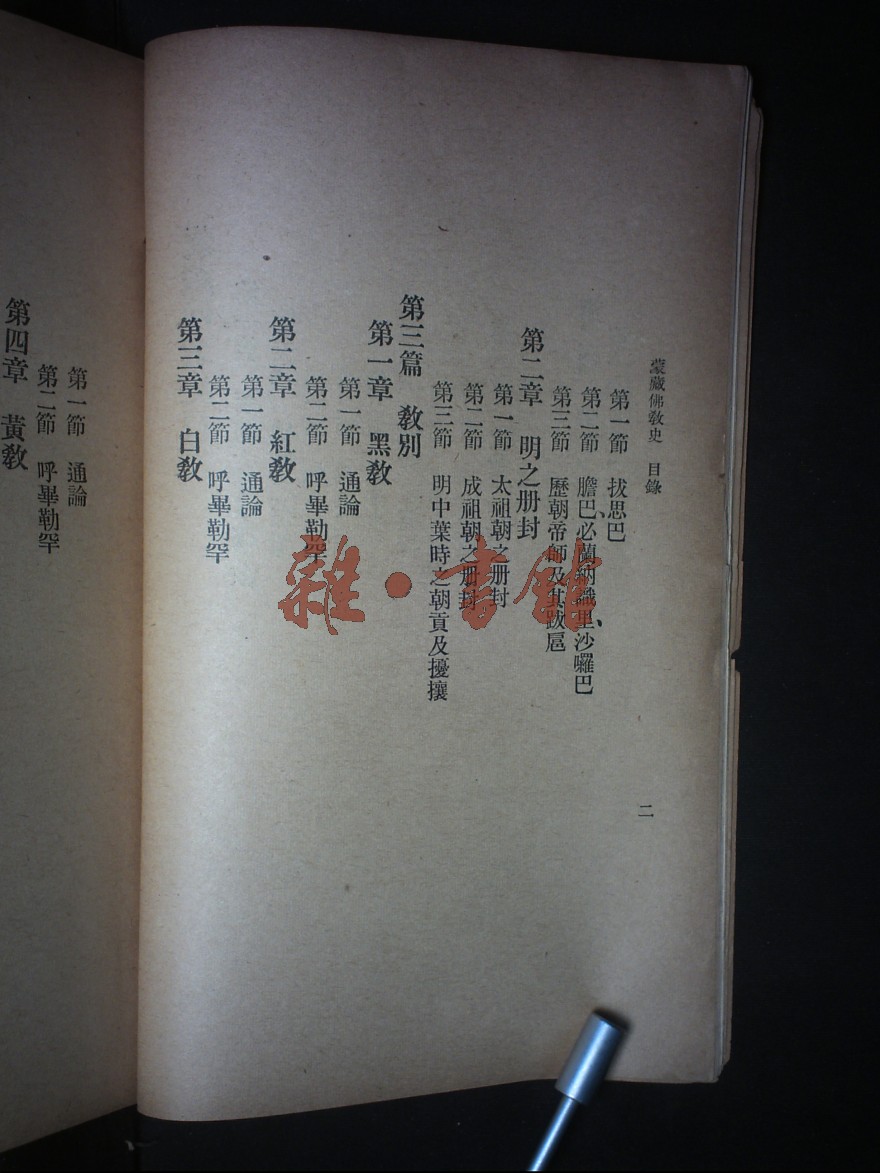 蒙藏佛敎史 目錄
二
第一節 拔思巴
第二節 膽巴、必蘭納識里、沙囉巴
第三節 歷朝帝師及其跋扈
第二章 明之册封
第一節 太祖朝之册封
第二節 成祖朝之册封
第三節 明中葉時之朝貢及擾攘
第三篇 敎別
第一章 黑敎
第一節 通論
第二節 呼畢勒罕
第二章 紅敎
第一節 通論
第二節 呼畢勒罕
第三章 白敎
第一節 通論
第二節 呼畢勒罕
第四章 黃敎
雜·書館